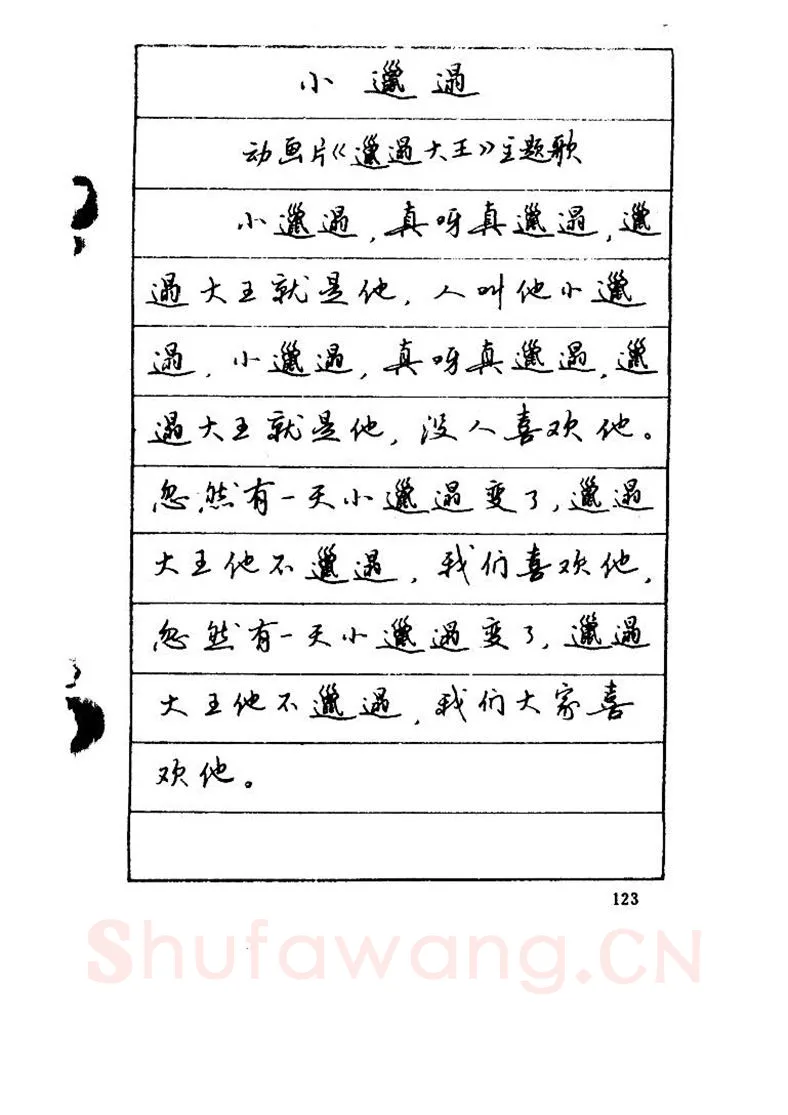 小邋遢
动画片《邋遢大王》主题歌
小邋遢，真呀真邋遢，邋
遢大王就是他，人叫他小邋
遢，小邋遢，真呀真邋遢，邋
遢大王就是他，没人喜欢他。
忽然有一天小邋遢变了，邋遢
大王他不邋遢，我们喜欢他，
忽然有一天小邋遢变了，邋遢
大王他不邋遢，我们大家喜
欢他。
123
Shufawang.CN